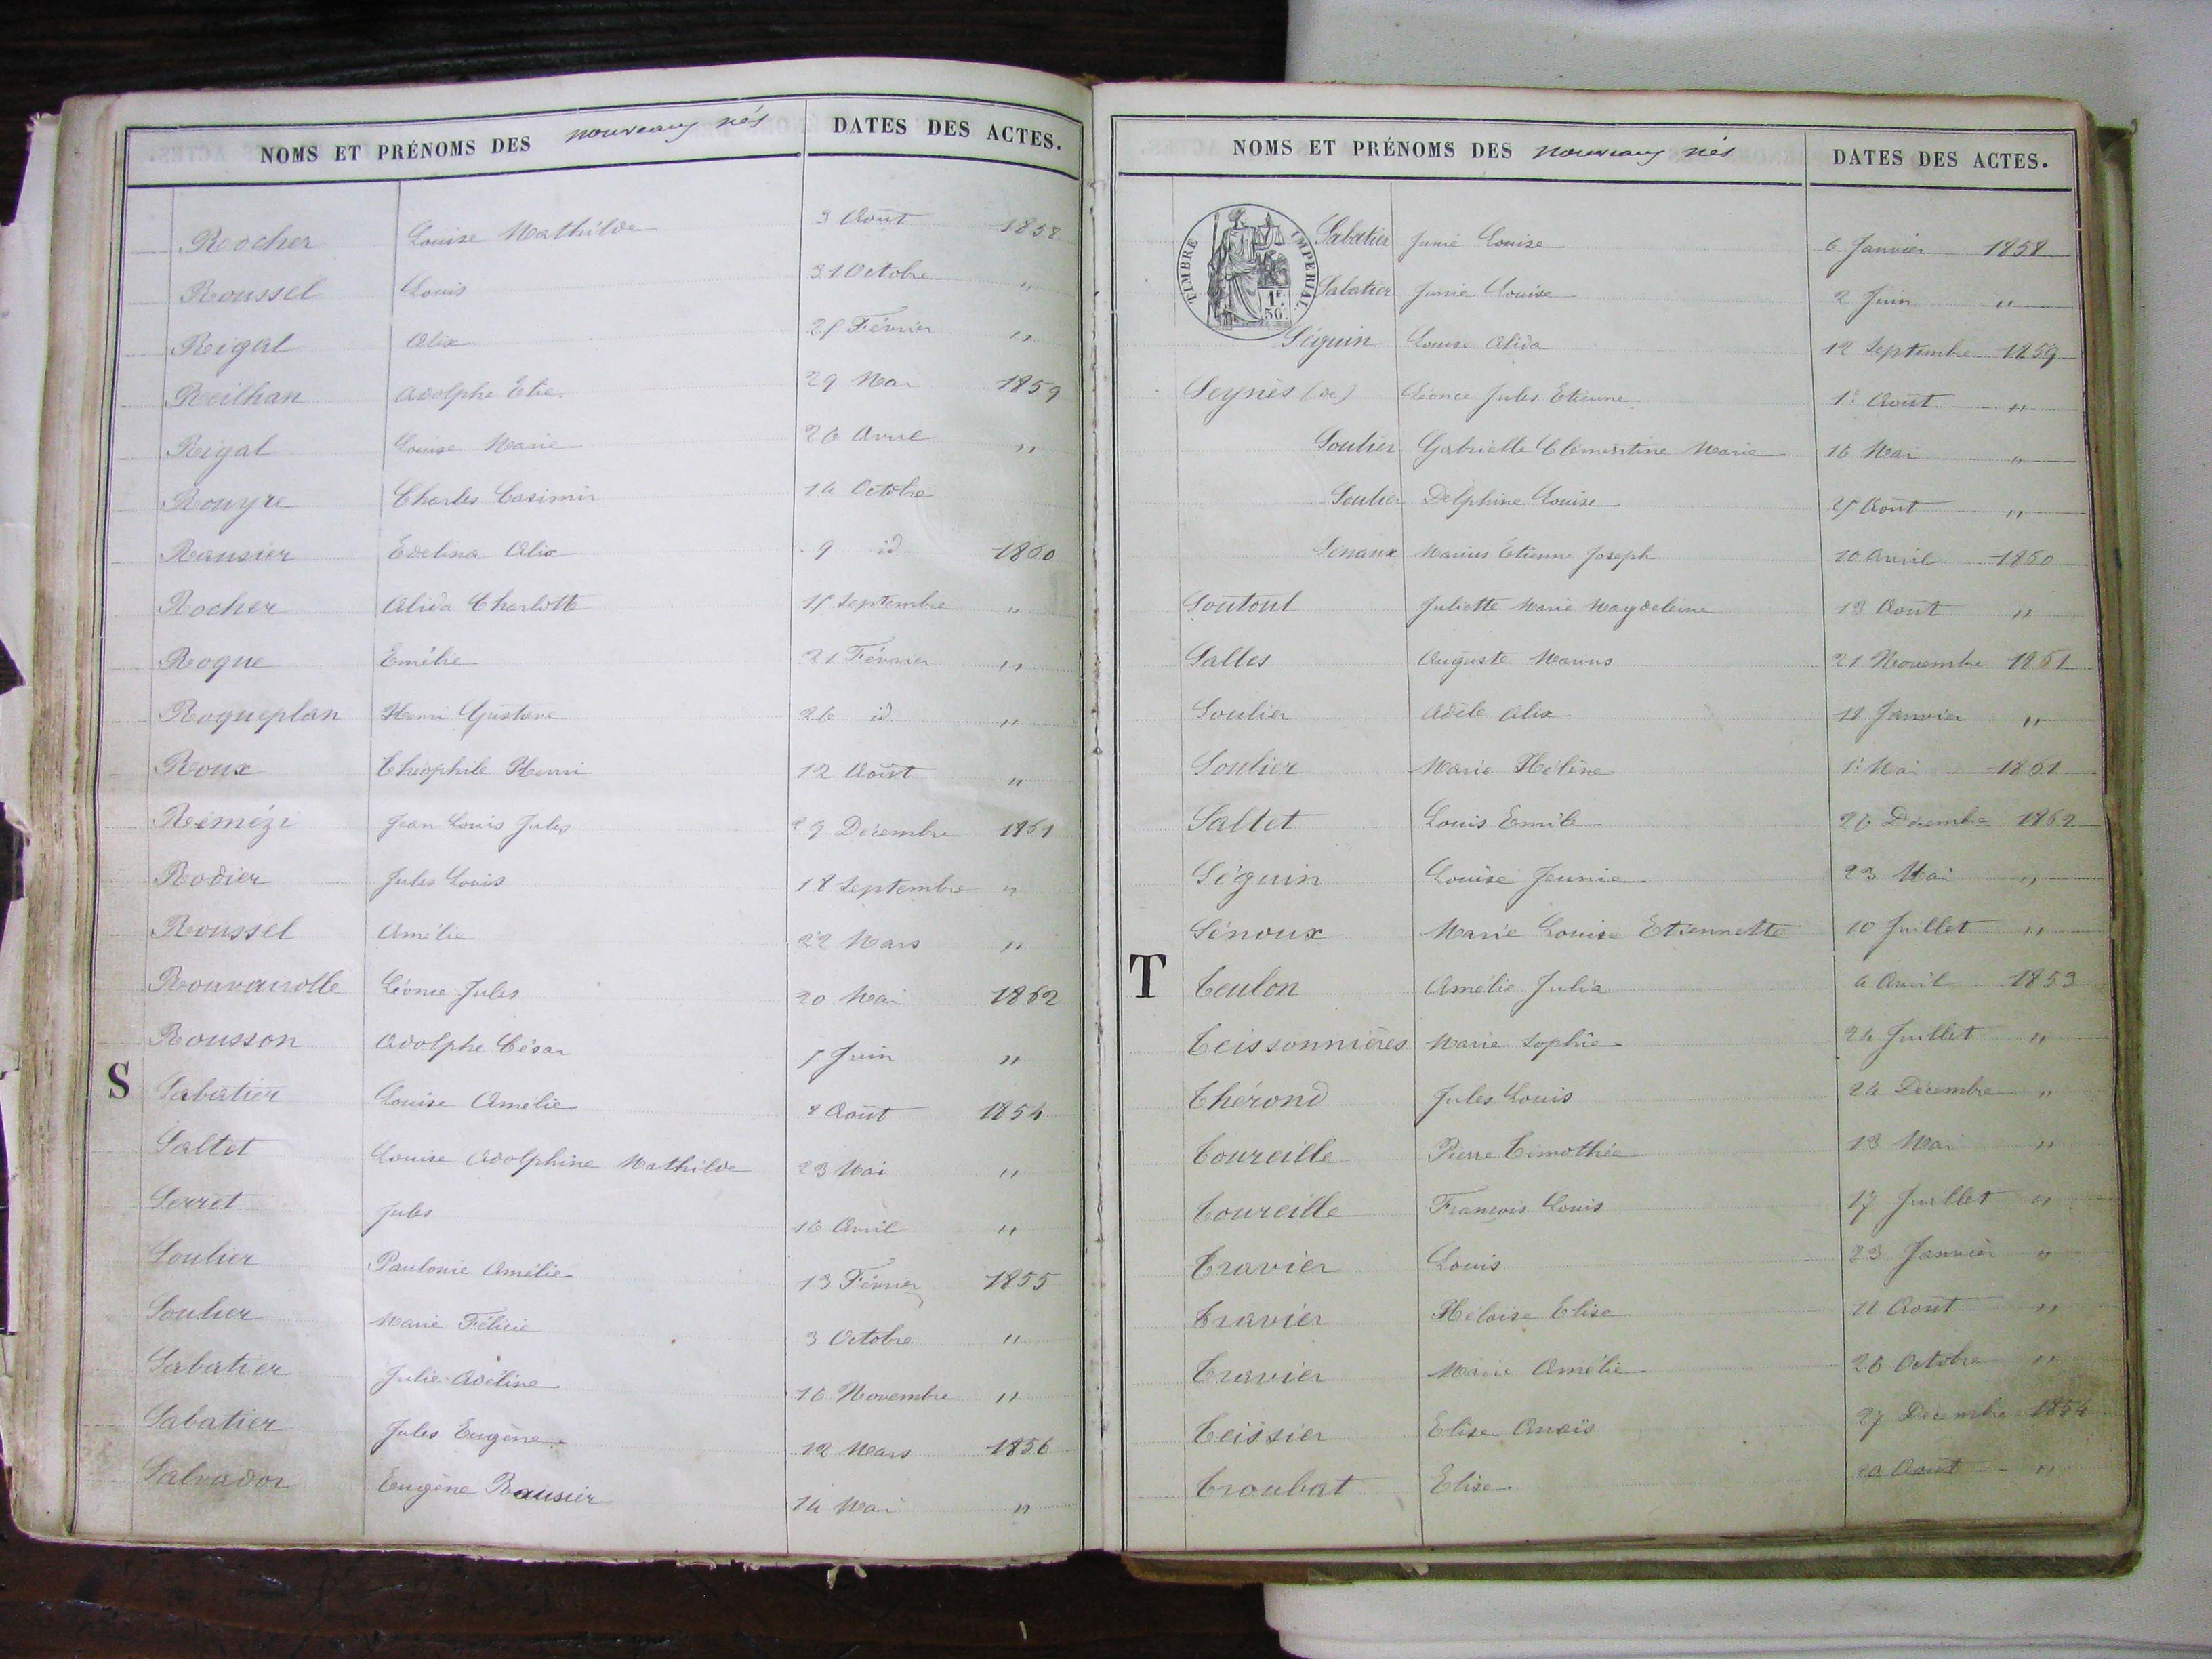 NOMS ET PRÉNOMS DES nouveaux nés DATES DES ACTES.
Rocher Louise Mathilde 3 Août 1858
Roussel Louis 31 Octobre "
Reigal Alix Février "
Reilhan Adolphe Etie. 29 Mai 1859
Rigal Louise Marie 26 Avril "
Rouyre Charles Casimir 14 Octobre
Rausier Edelina Alix 9 id 1860
Rocher Alida Charlotte Septembre "
Roque Emélie 21 Février "
Roqueplan Henri Gustave 26 id "
Roux Théophile Henri 12 Août "
Rémézi Jean Louis Jules 29 Décembre 1861
Rodier Jules Louis 18 Septembre "
Roussel Amélie 22 Mars "
Léonce Jules 20 Mai 1862
Rousson Adolphe César Juin "
S Sabatier Louise Amélie 8 Août 1854
Saltet Louise Adolphine Mathilde 23 Mai "
Serret Jules 16 Avril "
Soulier Paulonie Amélie 13 Février 1855
Soulier Marie Félicie 3 Octobre "
Sabatier Julie Adéline 16 Novembre "
Sabatier Jules Eugène 12 Mars 1856
Salvador Eugène Rausier 14 Mai "
NOMS ET PRÉNOMS DES nouveaux nés DATES DES ACTES.
TIMBRE IMPERIAL
1F 50c
Sabatier Junie Louise 6 Janvier 1858
Sabatier Junie Louise 2 Juin "
Séguin Louise Alida 12 Septembre 1859
Seynès (de) Léonce Jules Etienne 1er Août "
Soulier Gabrielle Clémentine Marie 16 Mai "
Soulier Delphine Louise Août "
Sénaux Marius Etienne Joseph 10 Avril 1860
Soutoul Juliette Marie Magdeleine 13 Août "
Salles Auguste Marius 21 Novembre 1861
Soulier Adèle Alix 11 Janvier "
Soulier Marie Hélène 1er Mai 1861
Saltet Louis Emile 26 Décembre 1862
Séguin Louise Jeunie 23 Mai "
Sénoux Marie Louise Etiennette 10 Juillet "
T Teulon Amélie Julia 4 Avril 1853
Teissonnières Marie Sophie 24 Juillet "
Thérond Jules Louis 24 Décembre "
Toureille Pierre Timothée 13 Mai "
Toureille François Louis 17 Juillet "
Travier Louis 23 Janvier "
Travier Héloïse Elise 11 Août "
Travier Marie Amélie 26 Octobre "
Teissier Elise Anaïs 27 Décembre 1854
Troubat Elise 20 Août "